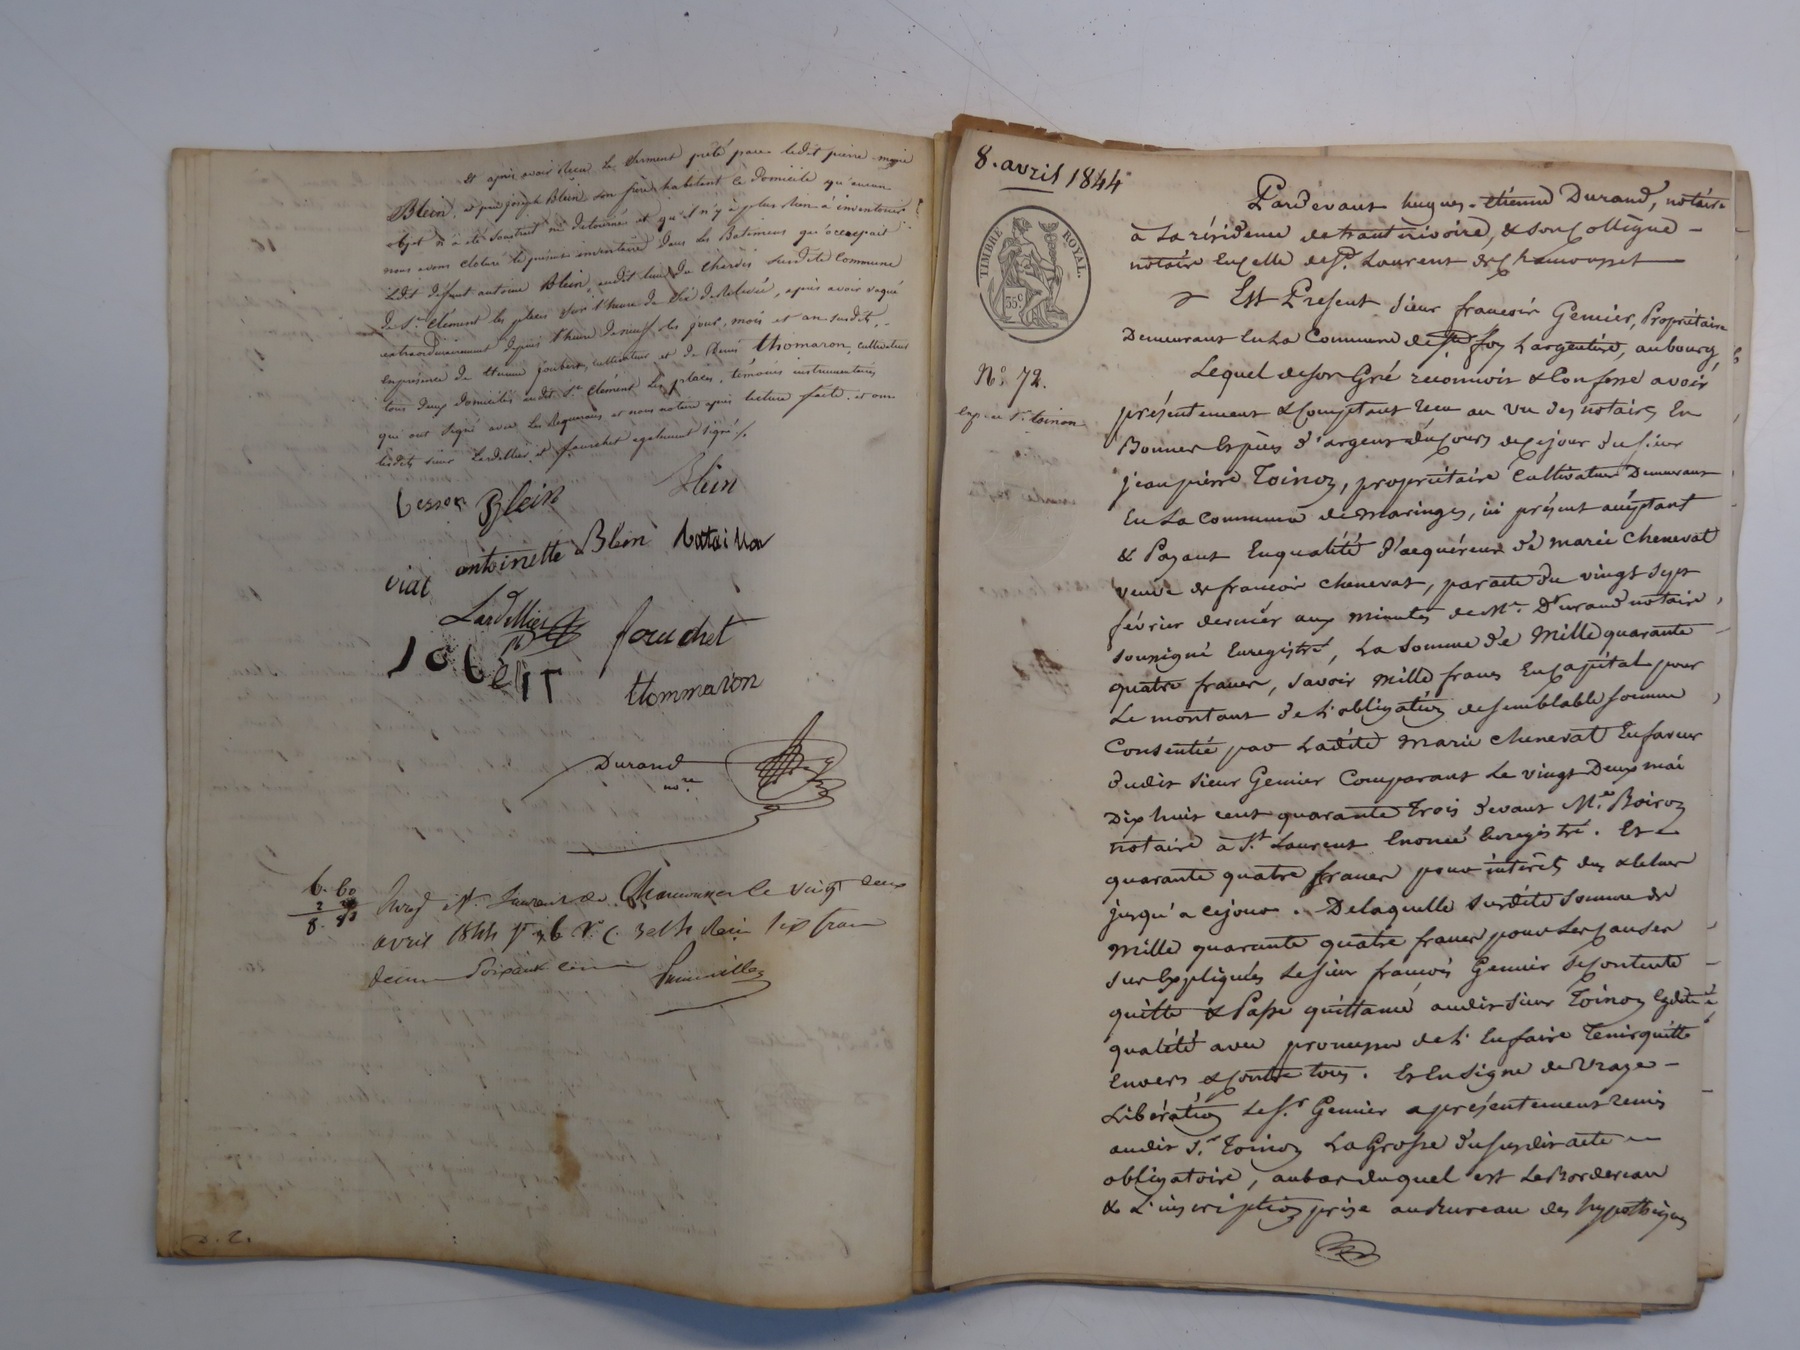 Et après avoir Recu le serment prêté par ledit pierre marie
Blein, et par joseph Blein son frère habitant le domicile qu'aucun
objet n'a été soustrait ni détourné et qu'il n'y a plus Rien à inventorier
nous avons cloturé le présent inventaire dans les Batimens qu'occupait
ledit défunt antoine Blein, audit lieu du susdite commune
de St. clément les places sur l'heure de de Relevée, après avoir vaqué
extraordinairement depuis l'heure de neuf les jour, mois et an susdits,
En présence de joubert, cultivateur et de Thomaron, cultivateur
tous deux domiciliés audit St. clément les places, témoins instrumentaires
qui ont signé avec les Requerans et nous notaire après lecture faite. et ont
lesdits sieur Lardellier et fouchet egalement signé /.
besson Blein Blein
viat antoinette Blein bataillon
Lardellier
joubert fouchet
thommaron
Durand
nore
6. 60
8.
Enreg à St. Laurent de Chamousset le vingt deux
avril 1844 Reçu six francs
décime soixante cent
8. avril 1844
TIMBRE ROYAL.
35 c
No. 72.
Exp. au Sr. toinon
Pardevant hugues-étienne Durand, notaire
à la résidence de haute rivoire, & son Collègue -
notaire En celle de St. Laurent de Chamousset
Est Présent Sieur françois Genier, Propriétaire
Demeurant En La Commune de Ste foy L'argentière, au bourg
Lequel de son Gré reconnoit & Confesse avoir
présentement & Comptant reçu au vu des notaires En
Bonnes Espèces d'argent du Cours de ce jour du sieur
jean pierre Toinon, propriétaire Cultivateur Demeurant
En La Commune de maringes, ici présent acceptant
& Payant En qualité d'acquéreur de marie chenevat
veuve de françois chenevat, par acte du vingt sept
février dernier aux minutes de Me. Durand notaire
soussigné Enregistré, La Somme de Mille quarante
quatre francs, savoir mille francs En Capital pour
Le montant de L'obligation de semblable somme
Consentie par Ladite marie chenevat En faveur
dudit sieur Genier Comparant Le vingt Deux mai
Dix huit cent quarante Trois devant Me. Boiron
notaire à St. Laurent Enoncé Enregistré. Et
quarante quatre francs pour intérêts des & Echus
jusqu'a ce jour. De laquelle susdite Somme de
mille quarante quatre francs pour Les Causes
sus Expliquées Le sieur françois Genier se Contente
quitte & Passe quittance audit sieur Toinon Esdite
qualité avec promesse de L'En faire Tenir quitte
Envers & Contre tous. Et En Signe de vraye -
Libération Le Sr. Genier a présentement remis
audit Sr. Toinon La Grosse du susdit acte
obligatoire, au bas duquel est Le Bordereau
& L'inscription prise au Bureau des hypothèques